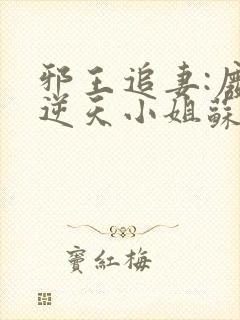 邪王追妻:廢
逆天小姐蘇
竇紅梅